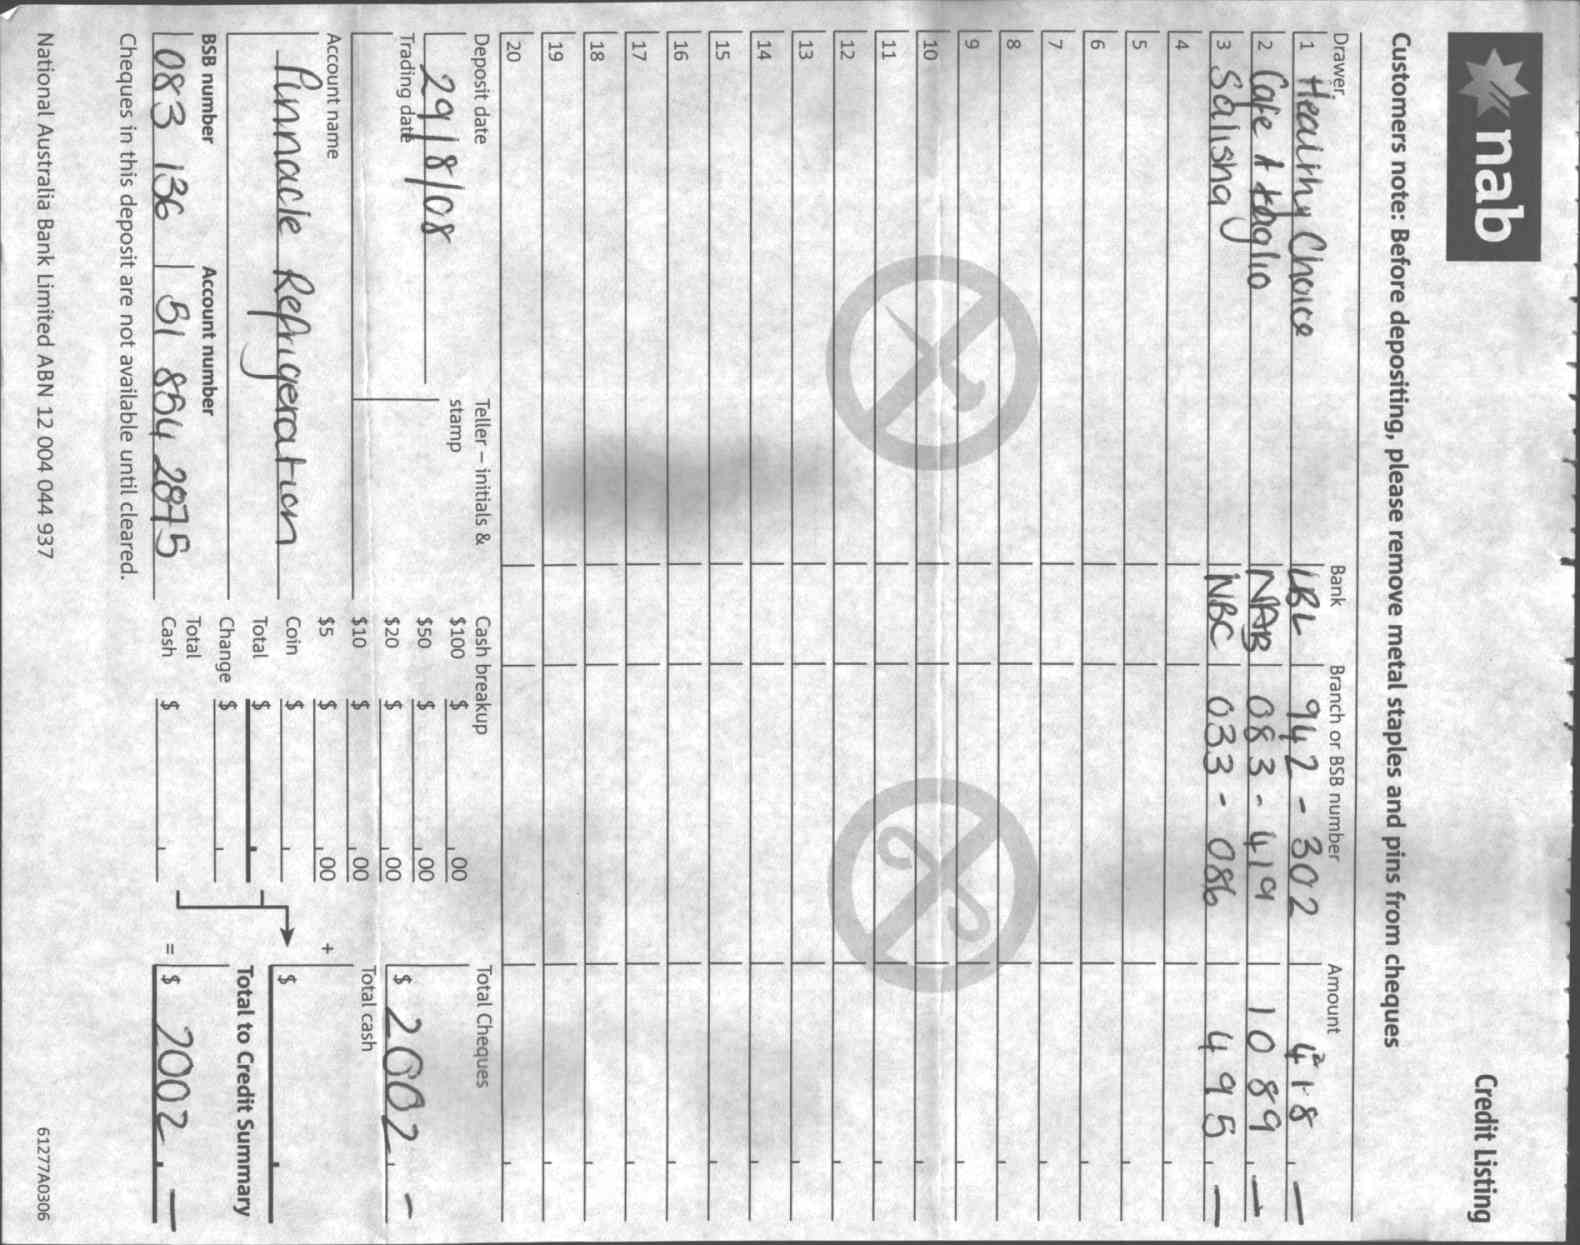 nab
Credit Listing
Customers note: Before depositing, please remove metal staples and pins from cheques
Drawer Bank Branch or BSB number Amount
1 Healthy Choice LBL 942 - 302 418 . —
2 Cafe A taglio NAB 083 - 419 1089 . —
3 Salisha NBC 033 - 086 495 . —
4
5
6
7
8
9
10
11
12
13
14
15
16
17
18
19
20
Deposit date
29/8/08
Trading date
Teller – initials &
stamp
Account name
Pinnacle Refrigeration
BSB number Account number
083 136 51 854 2875
Cheques in this deposit are not available until cleared.
Cash breakup
$100 $ .00
$50 $ .00
$20 $ .00
$10 $ .00
$5 $ .00
Coin $ .
Total $ .
Change $ .
Total
Cash $ .
Total Cheques
$ 2002 . –
+
Total cash
$ .
Total to Credit Summary
= $ 2002 . —
National Australia Bank Limited ABN 12 004 044 937
61277A0306